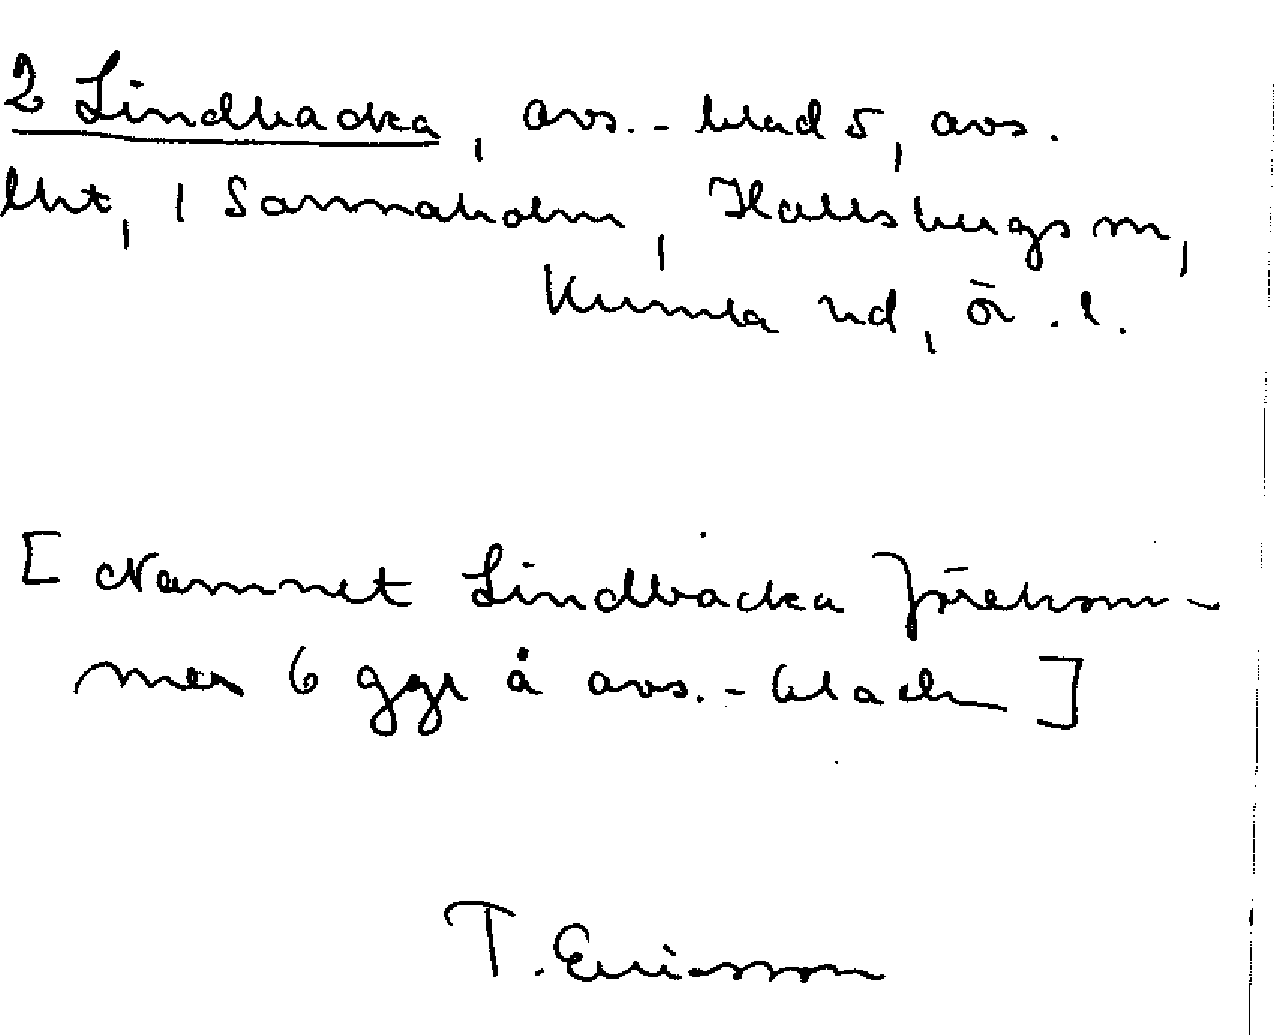 2 Lindbacka, avs.-blad 5, avs.
lht, 1 Sannaholm, Hallsbergs sn,
Kumla hd, ör. l.
[Namnet Lindbacka förekom-
mer 6 ggr å avs.-bladen]
T. Ericsson